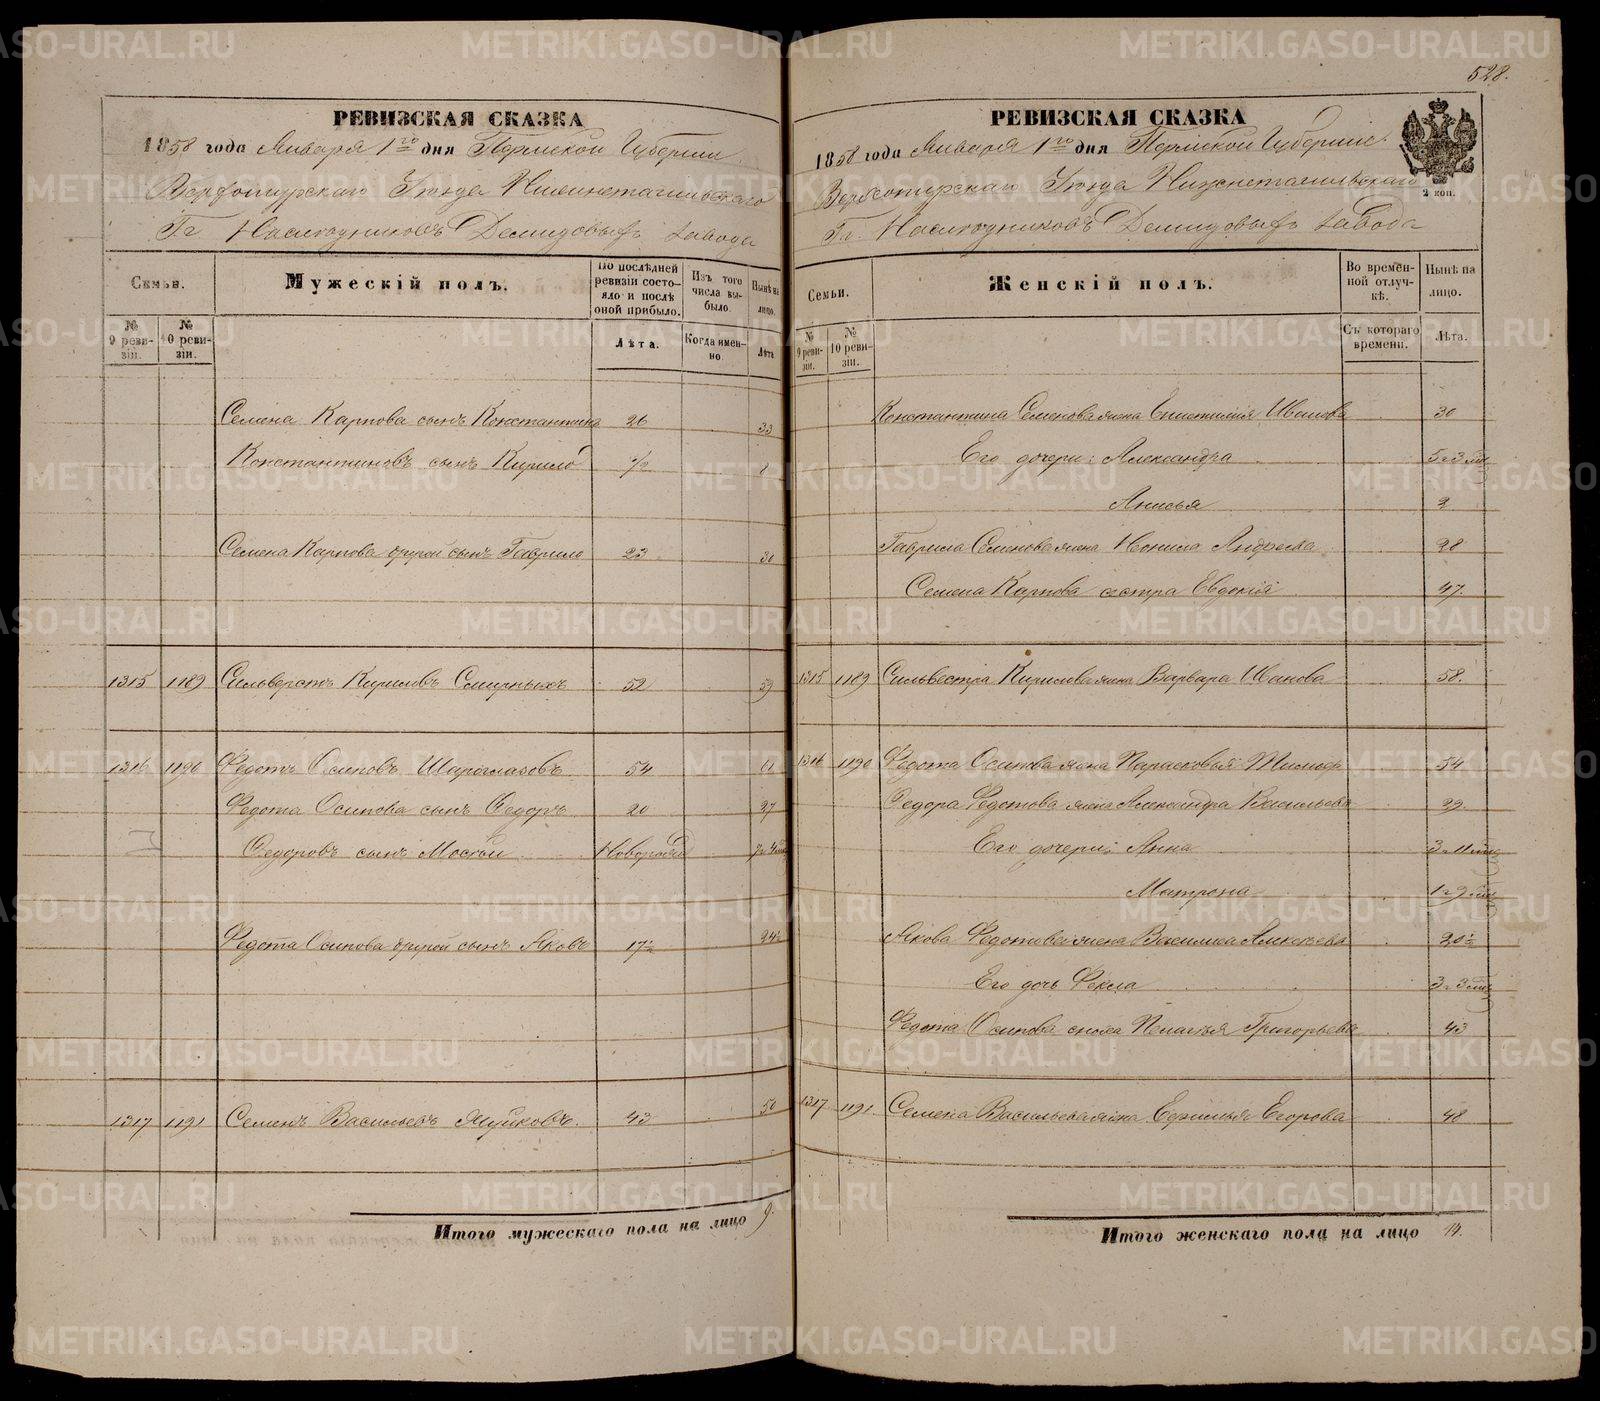 528.
РЕВИЗСКАЯ СКАЗКА
1858 года Января 1го дня Пермской Губернии
Верхотурскаго Уезда Нижнетагильскаго
Гг Наследниковъ Демидовыхъ завода
Семьи.
Мужескій полъ.
По послѣдней ревизіи состояло и послѣ оной прибыло.
Изъ того числа выбыло.
Нынѣ на лицо.
№ 9 ревизіи.
№ 10 ревизіи.
Лѣта.
Когда именно.
Лѣта
Семена Карпова сынъ Константинъ 26 33
Константиновъ сынъ Кирило 1/2 8
Семена Карпова другой сынъ Гаврило 23 30
1315 1189 Сильверстъ Кириловъ Смирныхъ 52 59
1316 1190 Федотъ Осиповъ Шароглазовъ 54 61
Федота Осипова сынъ Федоръ 20 27
Федоровъ сынъ Моисей
Федота Осипова другой сынъ Яковъ 17½ 24½
1317 1191 Семенъ Васильевъ 43 50
Итого мужескаго пола на лицо 9.
РЕВИЗСКАЯ СКАЗКА
1858 года Января 1го дня Пермской Губерніи
Верхотурскаго Уезда Нижнетагильскаго
Гг. Наследниковъ Демидовыхъ завода
2 коп.
Семьи.
Женскій полъ.
Во временной отлучкѣ.
Нынѣ на лицо.
№ 9 ревизіи.
№ 10 ревизіи.
Съ котораго времени.
Лѣта.
Константина Семенова жена Епистимія Иванова 30
Его дочери: Александра 5 г 3 мц
Анисья 2
Гаврила Семенова жена Неонила Андреева 28
Семена Карпова сестра Евдокія 47.
1315 1189 Сильвестра Кирилова жена Варвара Иванова 58.
1316 1190 Федота Осипова жена Парасковья 54
Федора Федотова жена Александра Васильева 29.
Его дочери: Анна 3 г 11 мц
Матрена 1 г 9 мц
Якова Федотова жена Василиса Алексеева 20½
Его дочь Фекла 3 г 3 мц
Федота Осипова сноха Пелагья Григорьева 43
1317 1191. Семена Васильева жена Ефимья Егорова 48
Итого женскаго пола на лицо 14.
METRIKI.GASO-URAL.RU